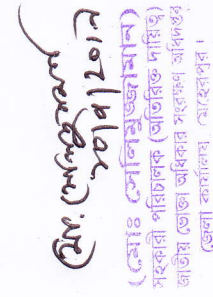 মো: সেলিমুজ্জামান
২০/৭/২০১৭
(মোঃ সেলিমুজ্জামান)
সহকারী পরিচালক (অতিরিক্ত দায়িত্ব)
জাতীয় ভোক্তা অধিকার সংরক্ষণ অধিদপ্তর
জেলা কার্যালয় মেহেরপুর।